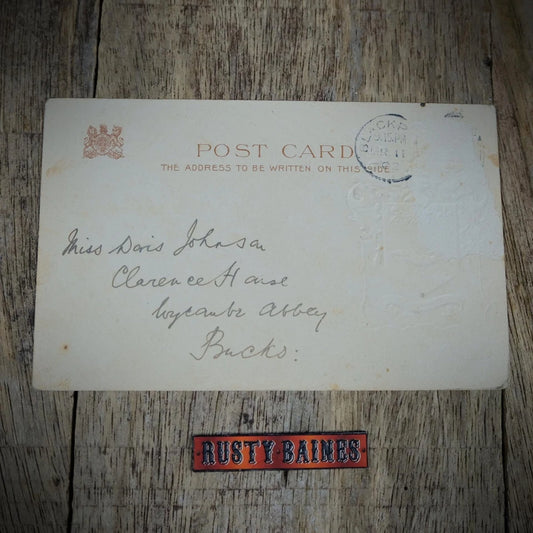 POST CARD
THE ADDRESS TO BE WRITTEN ON THIS SIDE
BLACK
9.15PM
11
Miss Doris Johnson
Clarence House
Wycombe Abbey
Bucks:
RUSTY BAINES